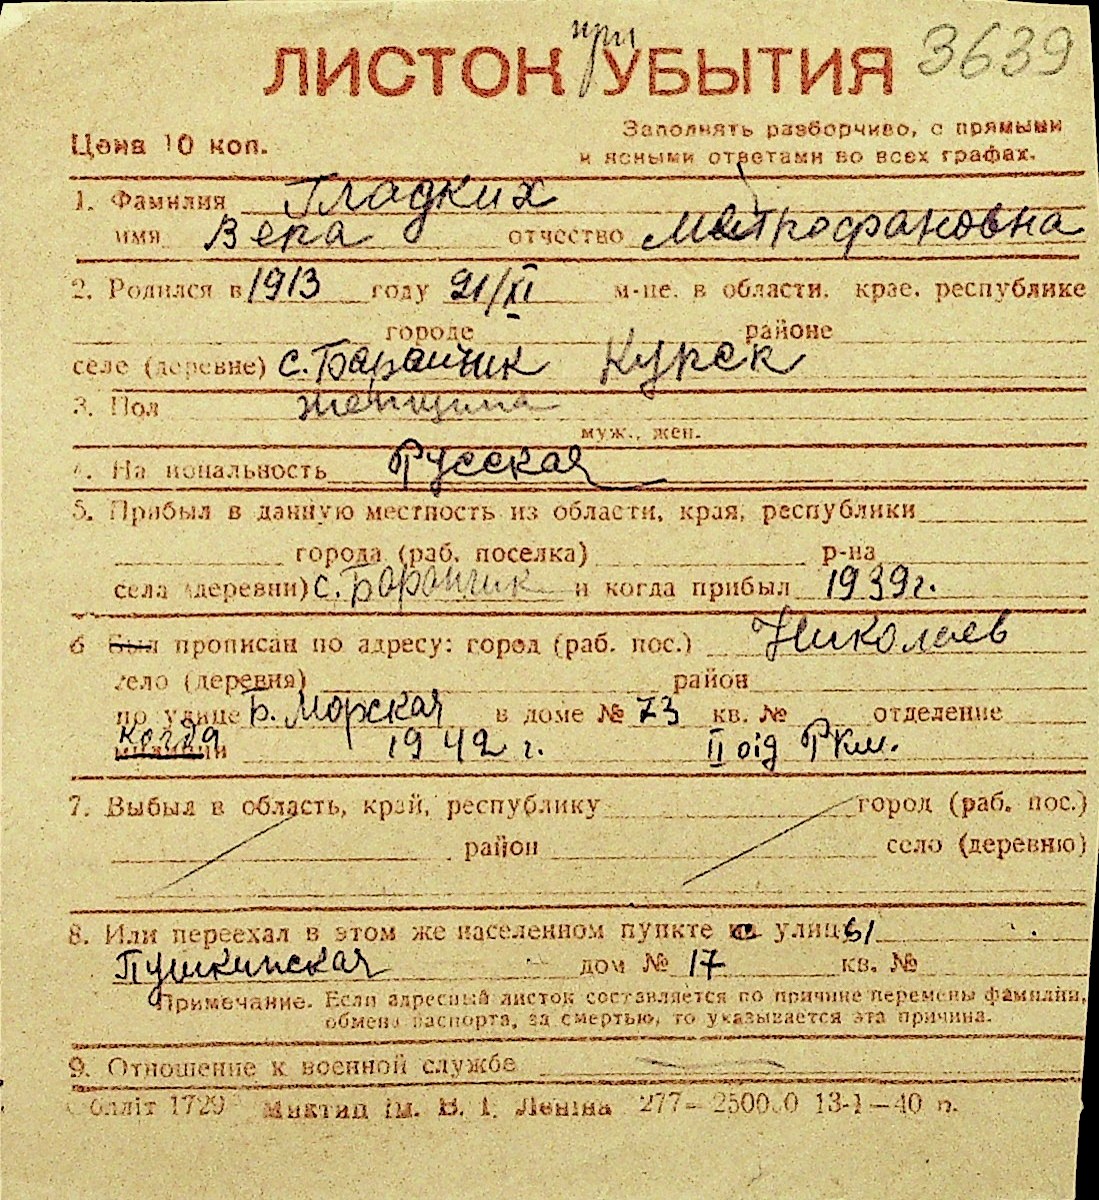 при
ЛИСТОК УБЫТИЯ 3639
Цена 10 коп.
Заполнять разборчиво, с прямыми
и ясными ответами во всех графах.
1. Фамилия Гладких
имя Вера отчество Митрофановна
2. Родился в 1913 году 21/XI м-це. в области, крае, республике
городе районе
селе (деревне) с. Баранчик Курск
3. Пол женщина
муж., жен.
4. Национальность Русская
5. Прибыл в данную местность из области, края, республики
города (раб. поселка) р-на
села (деревни) с. Баранчик и когда прибыл 1939г.
6 Был прописан по адресу: город (раб. пос.) Николаев
село (деревня) район
по улице Б. Морская в доме № 73 кв. № отделение
когда
милиции 1942 г. II від РКМ.
7. Выбыл в область, край, республику город (раб. пос.)
район село (деревню)
8. Или переехал в этом же населенном пункте из улицы
Пушкинская дом № 17 кв. №
Примечание. Если адресный листок составляется по причине перемены фамилии,
обмена паспорта, за смертью, то указывается эта причина.
9. Отношение к военной службе
1729 ім. В. І. Леніна 277— 13-1—40 п.